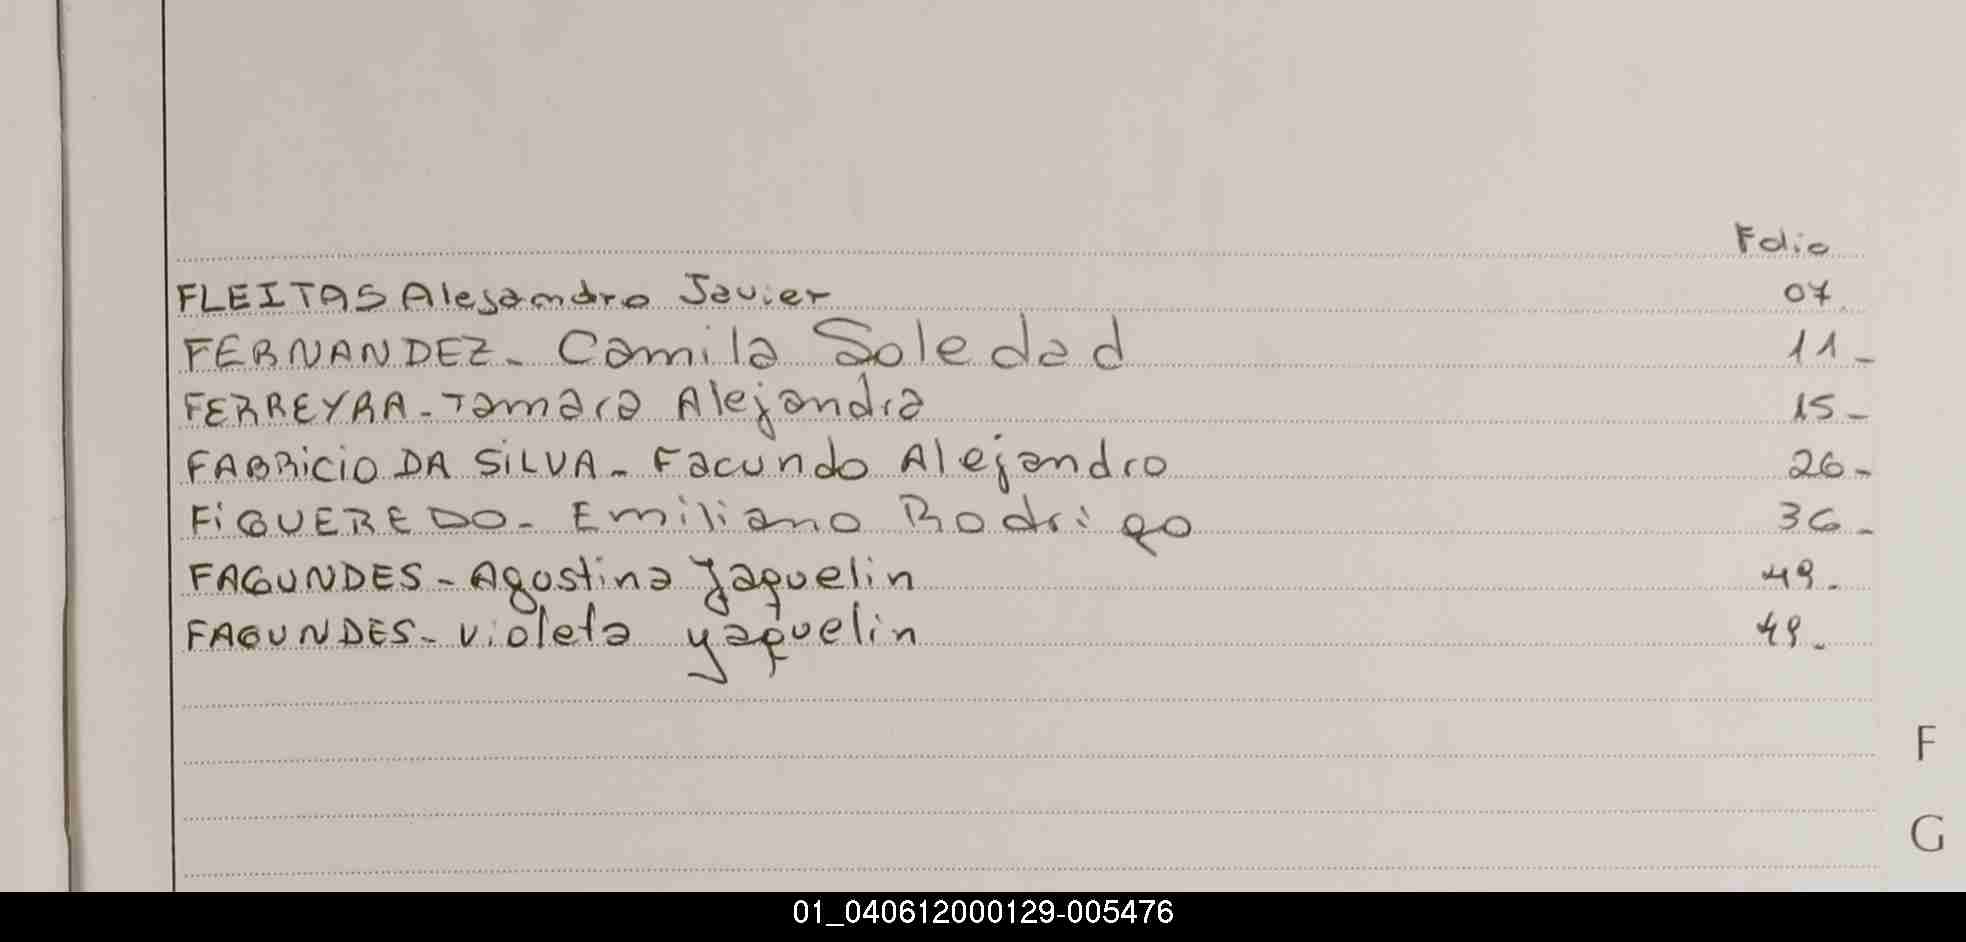 Folio
FLEITAS Alejandro Javier 07
FERNANDEZ - Camila Soledad 11 -
FERREYRA - Tamara Alejandra 15 -
FABRICIO DA SILVA - Facundo Alejandro 26 -
FIGUEREDO - Emiliano Rodrigo 36 -
FAGUNDES - Agostina Yaquelin 49 -
FAGUNDES - Violeta yaquelin 49 -
F
G
01_040612000129-005476